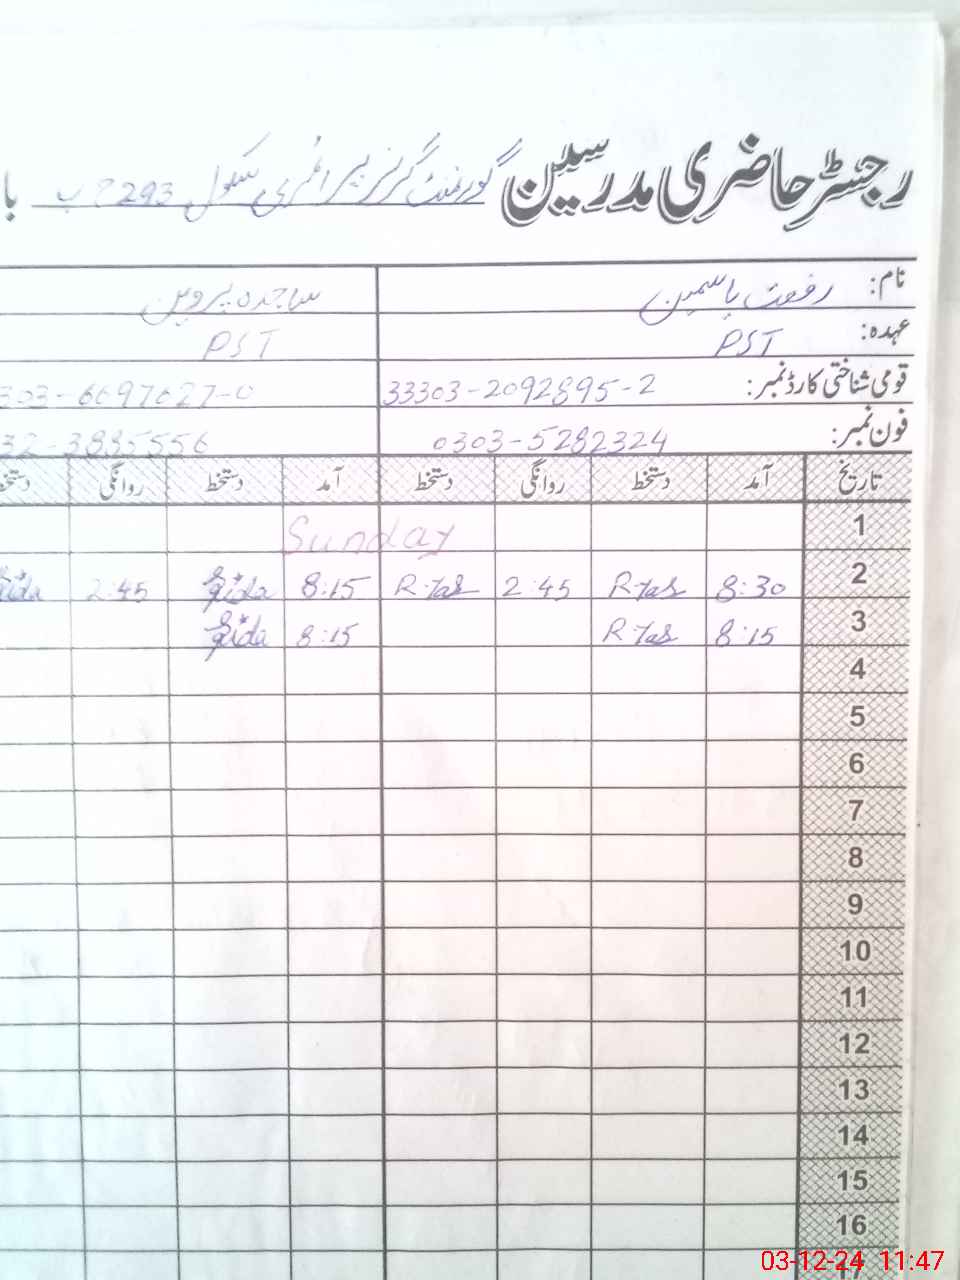 رجسٹر حاضری مدرسین گورنمنٹ گرلز پرائمری سکول 293 گ ب با
نام: رفعت یاسمین ساجدہ پروین
عہدہ: PST PST
قومی شناختی کارڈ نمبر: 33303-2092895-2 303-6697627-0
فون نمبر: 0303-5282324 32-3885556
تاریخ آمد دستخط روانگی دستخط آمد دستخط روانگی
1 Sunday
2 8:30 R-Yas 2:45 R-Yas 8:15 2:45
3 8:15 R-Yas 8:15
4
5
6
7
8
9
10
11
12
13
14
15
16
17
03-12-24 11:47